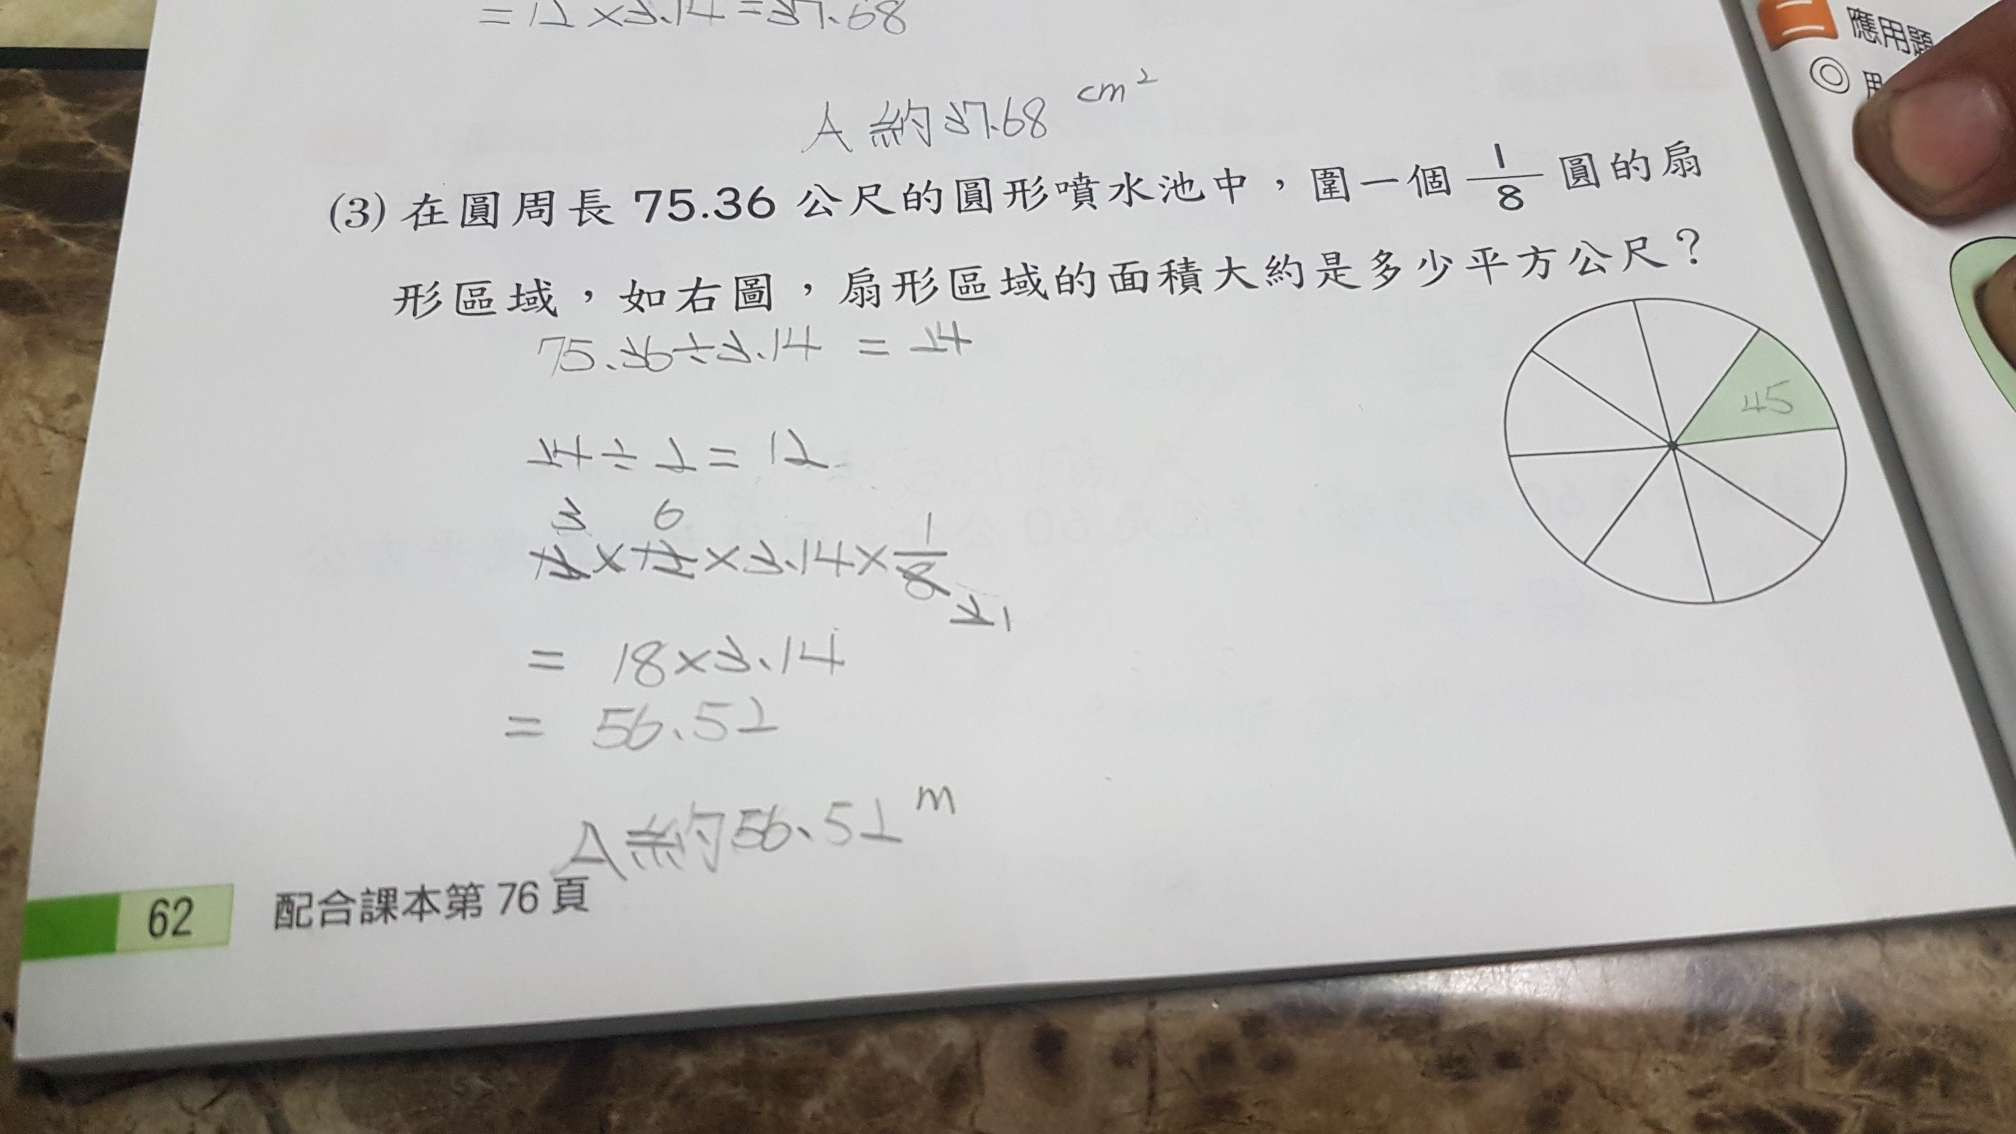 =12×3.14=37.68
A 約37.68 cm²
(3) 在圓周長 75.36 公尺的圓形噴水池中，圍一個 1/8 圓的扇
形區域，如右圖，扇形區域的面積大約是多少平方公尺？
75.36÷3.14 = 24
45
24÷2= 12
3 6
12×12×3.14×1/8
2 1
= 18×3.14
= 56.52
A 約56.52 m
62 配合課本第 76 頁
二 應用題
◎